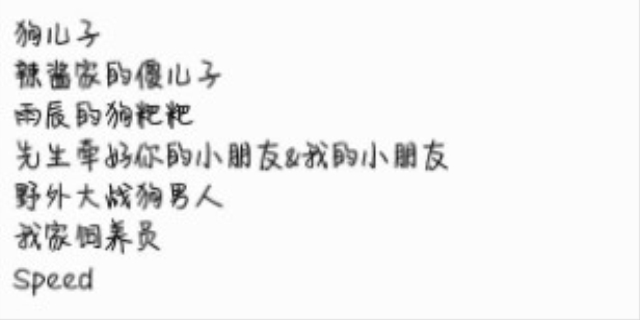 狗儿子
辣酱家的傻儿子
雨辰的狗粑粑
先生牵好你的小朋友&我的小朋友
野外大战狗男人
我家饲养员
Speed